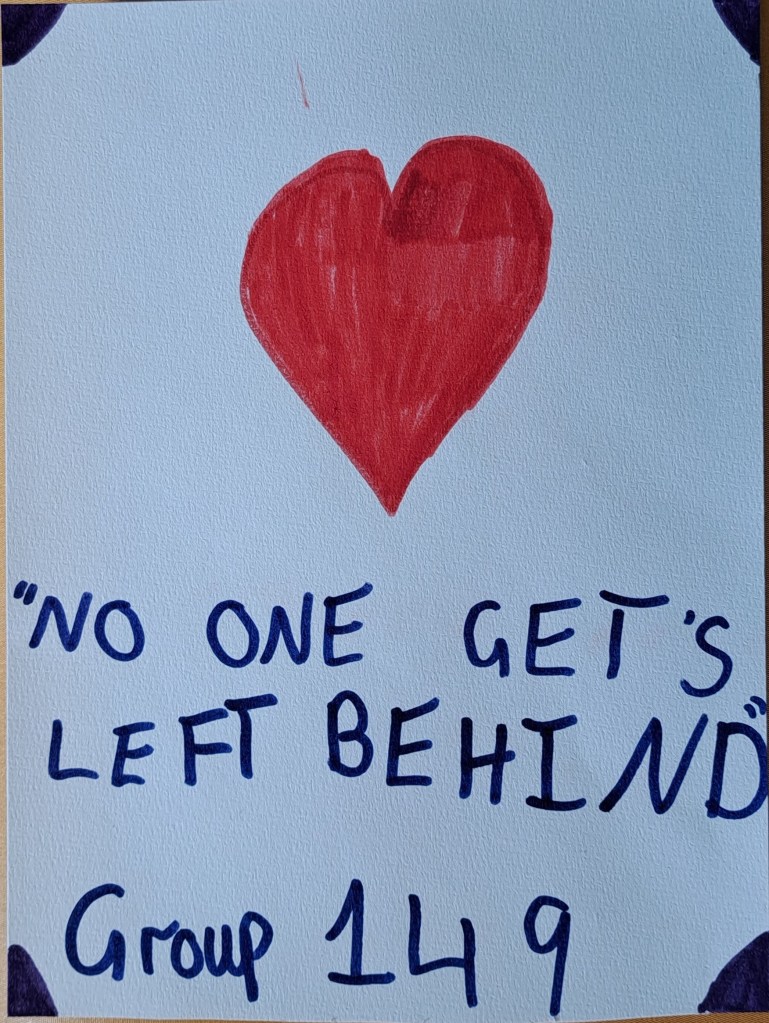 "NO ONE GET'S
LEFT BEHIND"
Group 149